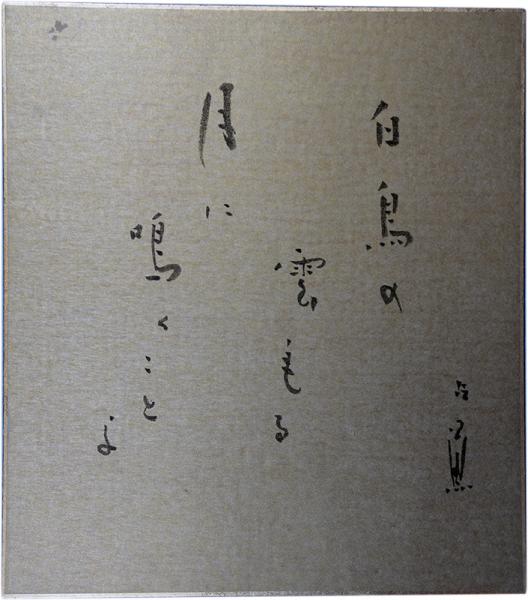 占魚
白鳥の
雲もる
月に
鳴くこと
よ